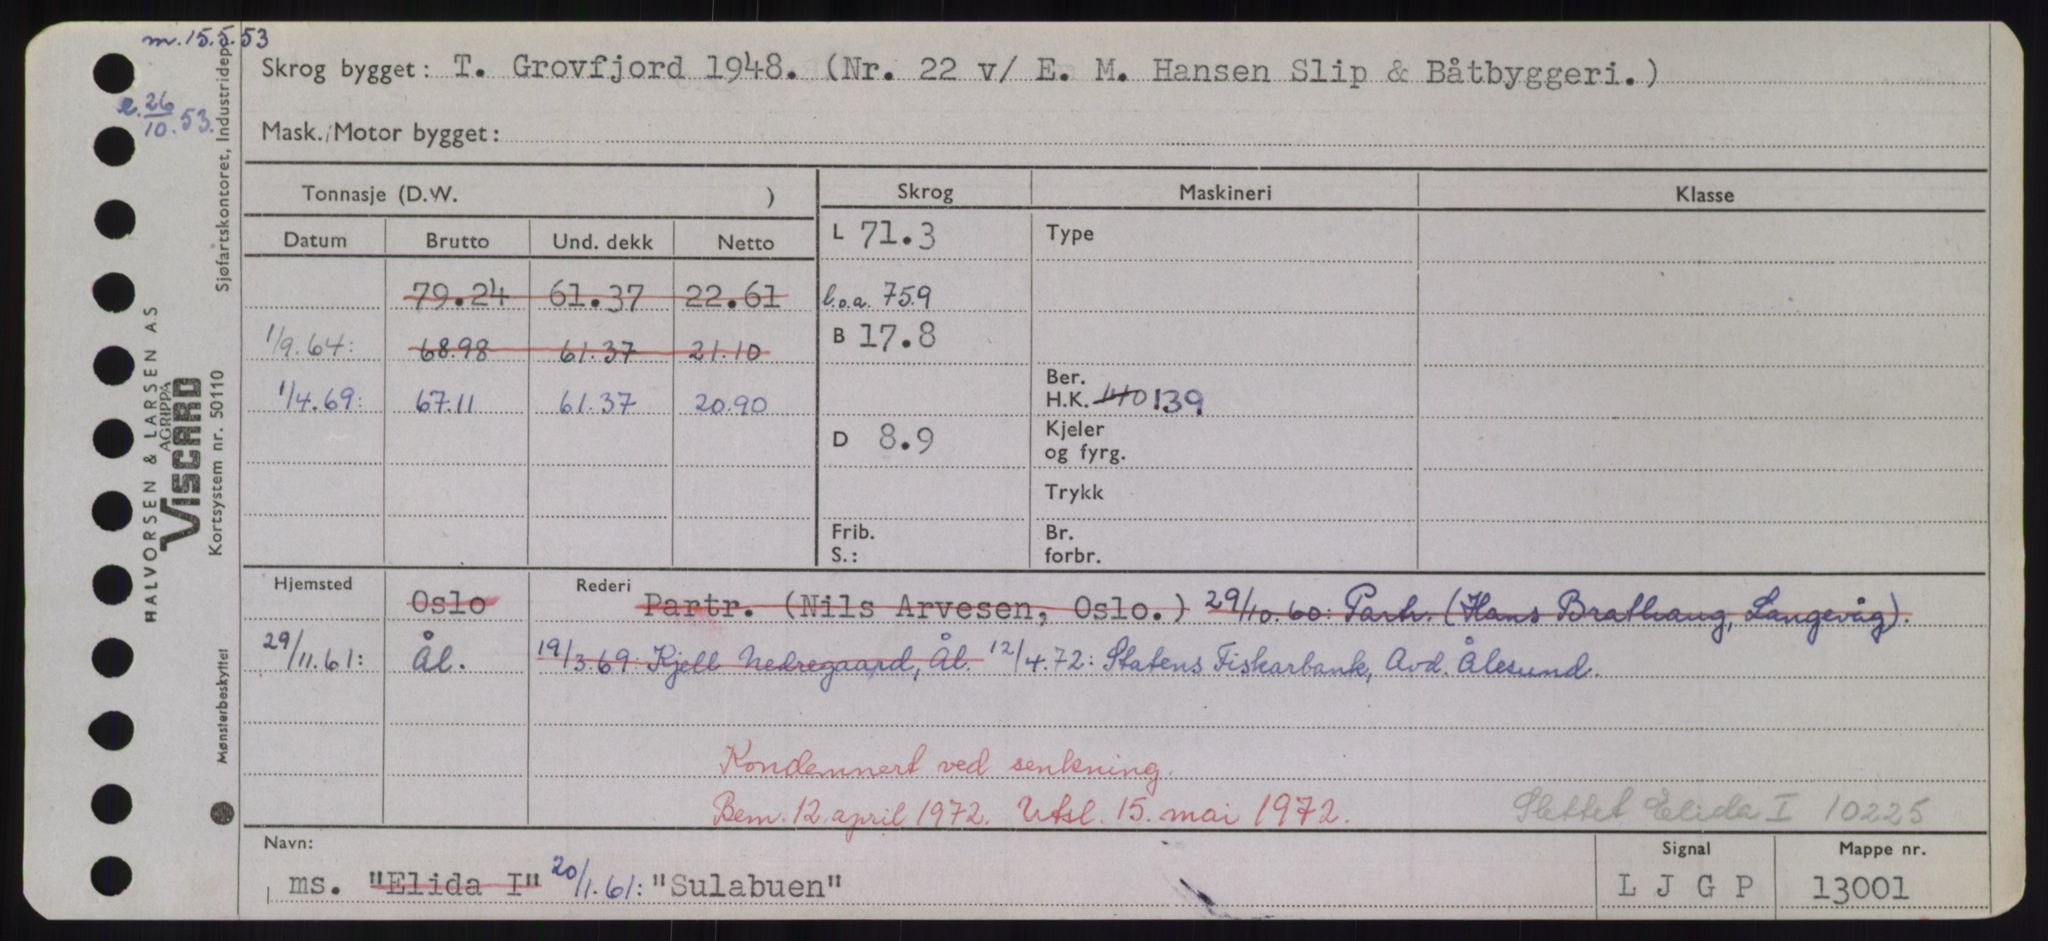 m. 15.5.53
e. 26/10.53.
Skrog bygget: T. Grovfjord 1948. (Nr. 22 v/ E. M. Hansen Slip & Båtbyggeri.)
Mask./Motor bygget:
Tonnasje (D.W. )
Skrog
Maskineri
Klasse
Datum Brutto Und. dekk Netto
L 71.3
Type
79.24 61.37 22.61
l.o.a. 75.9
1/9.64: 68.98 61.37 21.10
B 17.8
1/4.69: 67.11 61.37 20.90
Ber.
H.K. 110 139
D 8.9
Kjeler
og fyrg.
Trykk
Frib.
S.:
Br.
forbr.
Hjemsted Oslo Rederi Partr. (Nils Arvesen, Oslo.) 29/10.60: Partr. (Hans Brathaug, Langevåg).
29/11.61: Ål. 19/3.69: Kjell Nedregaard, Ål. 12/4.72: Statens Fiskarbank, Avd. Ålesund.
Kondemnert ved senkning.
Bem. 12. april 1972. Utsl. 15. mai 1972.
Slettet Elida I 10225
Navn:
Signal
Mappe nr.
ms. "Elida I" 20/1.61: "Sulabuen"
L J G P
13001
Sjøfartskontoret, Industridep.
HALVORSEN & LARSEN AS
AGRIPPA
VISCARD
Kortsystem nr. 50110
Mønsterbeskyttet